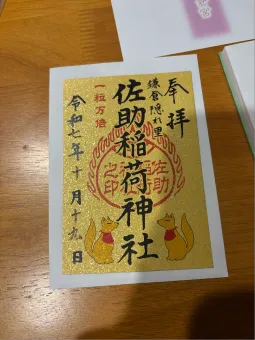 奉拝
鎌倉隠れ里
佐助稲荷神社
一粒万倍
佐助
稲荷
神社
之印
令和七年十月十九日